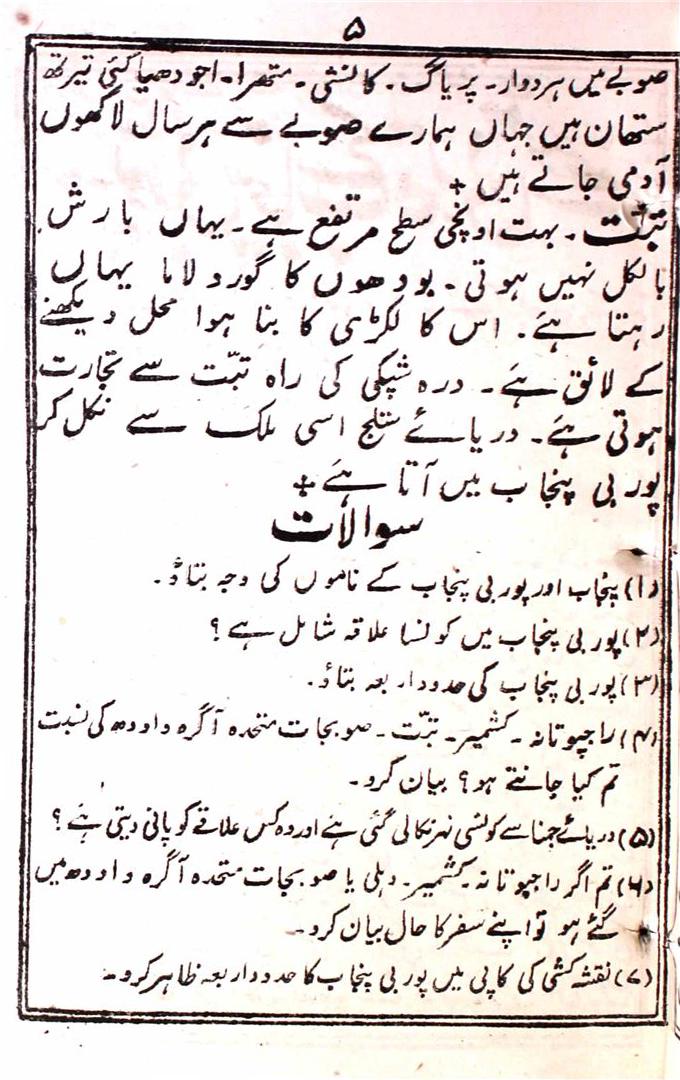 ۵
صوبے میں ہردوار۔ پریاگ۔ کانشی۔ متھرا۔ اجودھیا کئی تیرتھ
ستھان ہیں جہاں ہمارے صوبے سے ہر سال لاکھوں
آدمی جاتے ہیں +
تبّت۔ بہت اونچی سطح مرتفع ہے۔ یہاں بارش
بالکل نہیں ہوتی۔ بودھوں کا گورو لاما یہاں
رہتا ہے۔ اس کا لکڑی کا بنا ہوا محل دیکھنے
کے لائق ہے۔ درہ شپکی کی راہ تبّت سے تجارت
ہوتی ہے۔ دریائے ستلج اسی ملک سے نکل کر
پوربی پنجاب میں آتا ہے +
سوالات
(۱) پنجاب اور پوربی پنجاب کے ناموں کی وجہ بتاؤ۔
(۲) پوربی پنجاب میں کونسا علاقہ شامل ہے؟
(۳) پوربی پنجاب کی حدود اربعہ بتاؤ۔
(۴) راجپوتانہ۔ کشمیر۔ تبّت۔ صوبجات متحدہ آگرہ و اودھ کی نسبت
تم کیا جانتے ہو؟ بیان کرو۔
(۵) دریائے جمنا سے کونسی نہر نکالی گئی ہے اور وہ کس علاقے کو پانی دیتی ہے؟
(۶) تم اگر راجپوتانہ۔ کشمیر۔ دہلی یا صوبجات متحدہ آگرہ و اودھ میں
گئے ہو تو اپنے سفر کا حال بیان کرو۔
(۷) نقشہ کشی کی کاپی میں پوربی پنجاب کا حدود اربعہ ظاہر کرو۔